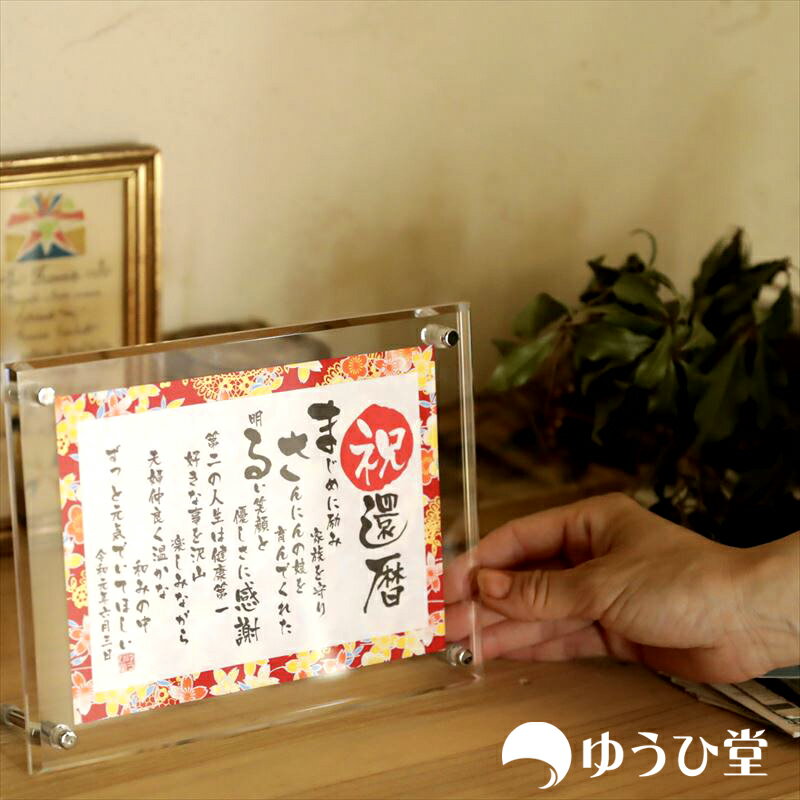 祝
還暦
まじめに励み
家族を守り
さんにんの娘を
育んでくれた
明るい笑顔と
優しさに感謝
第二の人生は健康第一
好きな事を沢山
楽しみながら
夫婦仲良く温かな
和みの中
ずっと元気でいてほしい
令和元年六月三日
ゆうひ堂